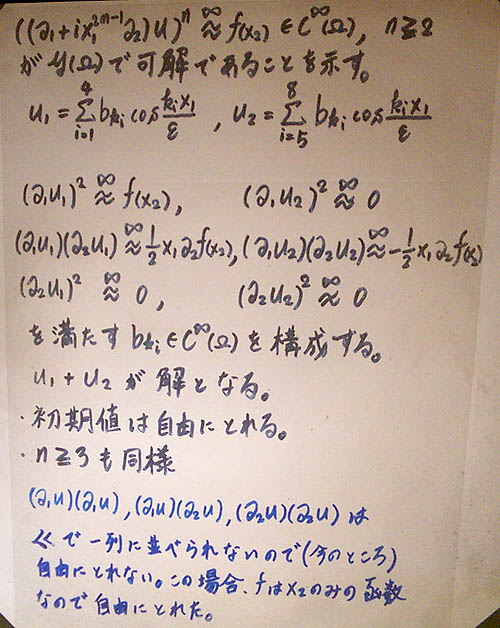 ((∂₁+ix₁²ᵐ⁻¹∂₂)u)ⁿ ≈^∞ f(x₂) ∈ C^∞(Ω), n≧2
が 𝒢(Ω)で可解であることを示す。
u₁ = Σ_{i=1}^{4} b_{ki} cos (k_i x₁/ε) , u₂ = Σ_{i=5}^{8} b_{ki} cos (k_i x₁/ε)
(∂₁u₁)² ≈^∞ f(x₂), (∂₁u₂)² ≈^∞ 0
(∂₁u₁)(∂₂u₁) ≈^∞ ½x₁∂₂f(x₂), (∂₁u₂)(∂₂u₂) ≈^∞ -½x₁∂₂f(x₂)
(∂₂u₁)² ≈^∞ 0, (∂₂u₂)² ≈^∞ 0
を満たす b_{ki} ∈ C^∞(Ω) を構成する。
u₁+u₂ が解となる。
・初期値は自由にとれる。
・n≧3も同様
(∂₁u)(∂₁u), (∂₁u)(∂₂u), (∂₂u)(∂₂u) は
≪で一列に並べられないので(今のところ)
自由にとれない。この場合、fはx₂のみの函数
なので自由にとれた。